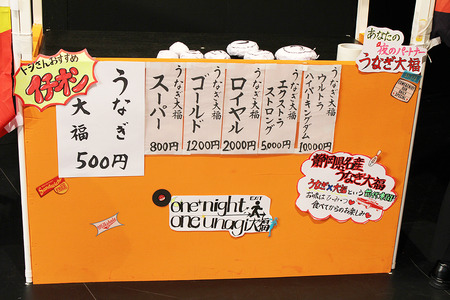 おすすめ
イチオシ
うなぎ
大福
500円
うなぎ大福
スーパー
800円
うなぎ大福
ゴールド
1200円
うなぎ大福
ロイヤル
2000円
うなぎ大福
エクストラ
ストロング
5,000円
ウルトラ
ハイパーキングダム
10000円
あなたの
夜のパートナー
うなぎ大福
静岡県名産
うなぎ大福
うなぎ×大福という
お味は
食べてからのお楽しみ
one night.
one unagi大福